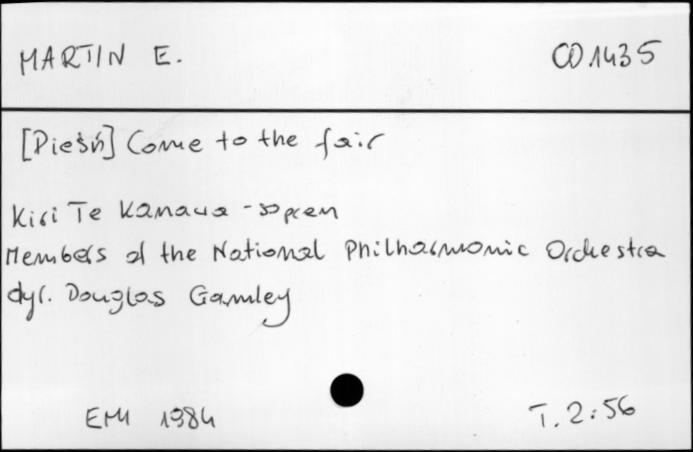 MARTIN E. CD 1435
[Pieśń] Come to the fair
Kiri Te Kanawa - sopran
Members of the National Philharmonic Orchestra
dyr. Douglas Gamley
EMI 1984 T. 2:56